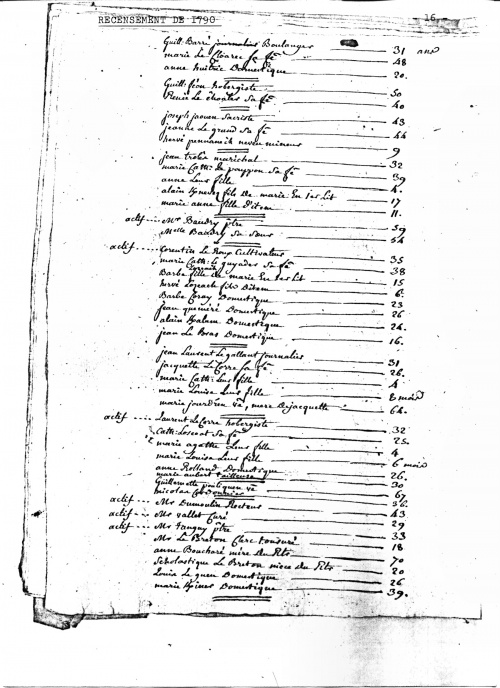 RECENSEMENT DE 1790
16
Guill: Barré journalier Boulanger 31 ans
marie Le floare sa fe 48
anne huitric Domestique 20.
Guill: féon hobergiste 50
Renée Le choalre sa fe 40
joseph jaouen sacriste 43
jeanne Le grand sa fe 44
hervé pennamik neveu mineur 9
jean marichal 32
marie Cath: Le pouppon sa fe 39
anne Leur fille 4.
alain fils De marie En 1er Lit 17
marie anne fille D'itom 11.
actif Mr Baudry ptre 59
Melle Baudry sa soeur 54
actif Corentin Le Roux Cultivateur 35
marie Cath: Le guyader sa fe 38
Barbe fille de marie En 1er Lit 15
hervé fils Ditom 6.
Barbe Coray Domestique 23
jean quemeré Domestique 26
alain Domestique 24.
jean Le Bras Domestique 16.
jean Laurent Le gallant journalier 31
jacquette Le Corre sa fe 26.
marie Cath: Leur fille 4
marie Louise Leur fille 8 mois
marie jourdren ve, mere De jacquette 64.
actif Laurent Le Corre hobergiste 32
Cath: sa fe 25.
marie agathe Leur fille 4
marie Louise Leur fille 6 mois
anne Rolland Domestique 26.
marie aubert tailleuse 30
Guillemette ve 67
nicolas Cordonnier 36.
actif Mr Dumoulin Recteur
actif Mr vallet Curé 43.
actif Mr tanguy ptre 29
Mr Le Breton Clerc tonsuré 33
anne Bouchare mere Du 18
Scholastique Le Breton niece du 70
Louise Le guen Domestique 20
marie Domestique 26
39.